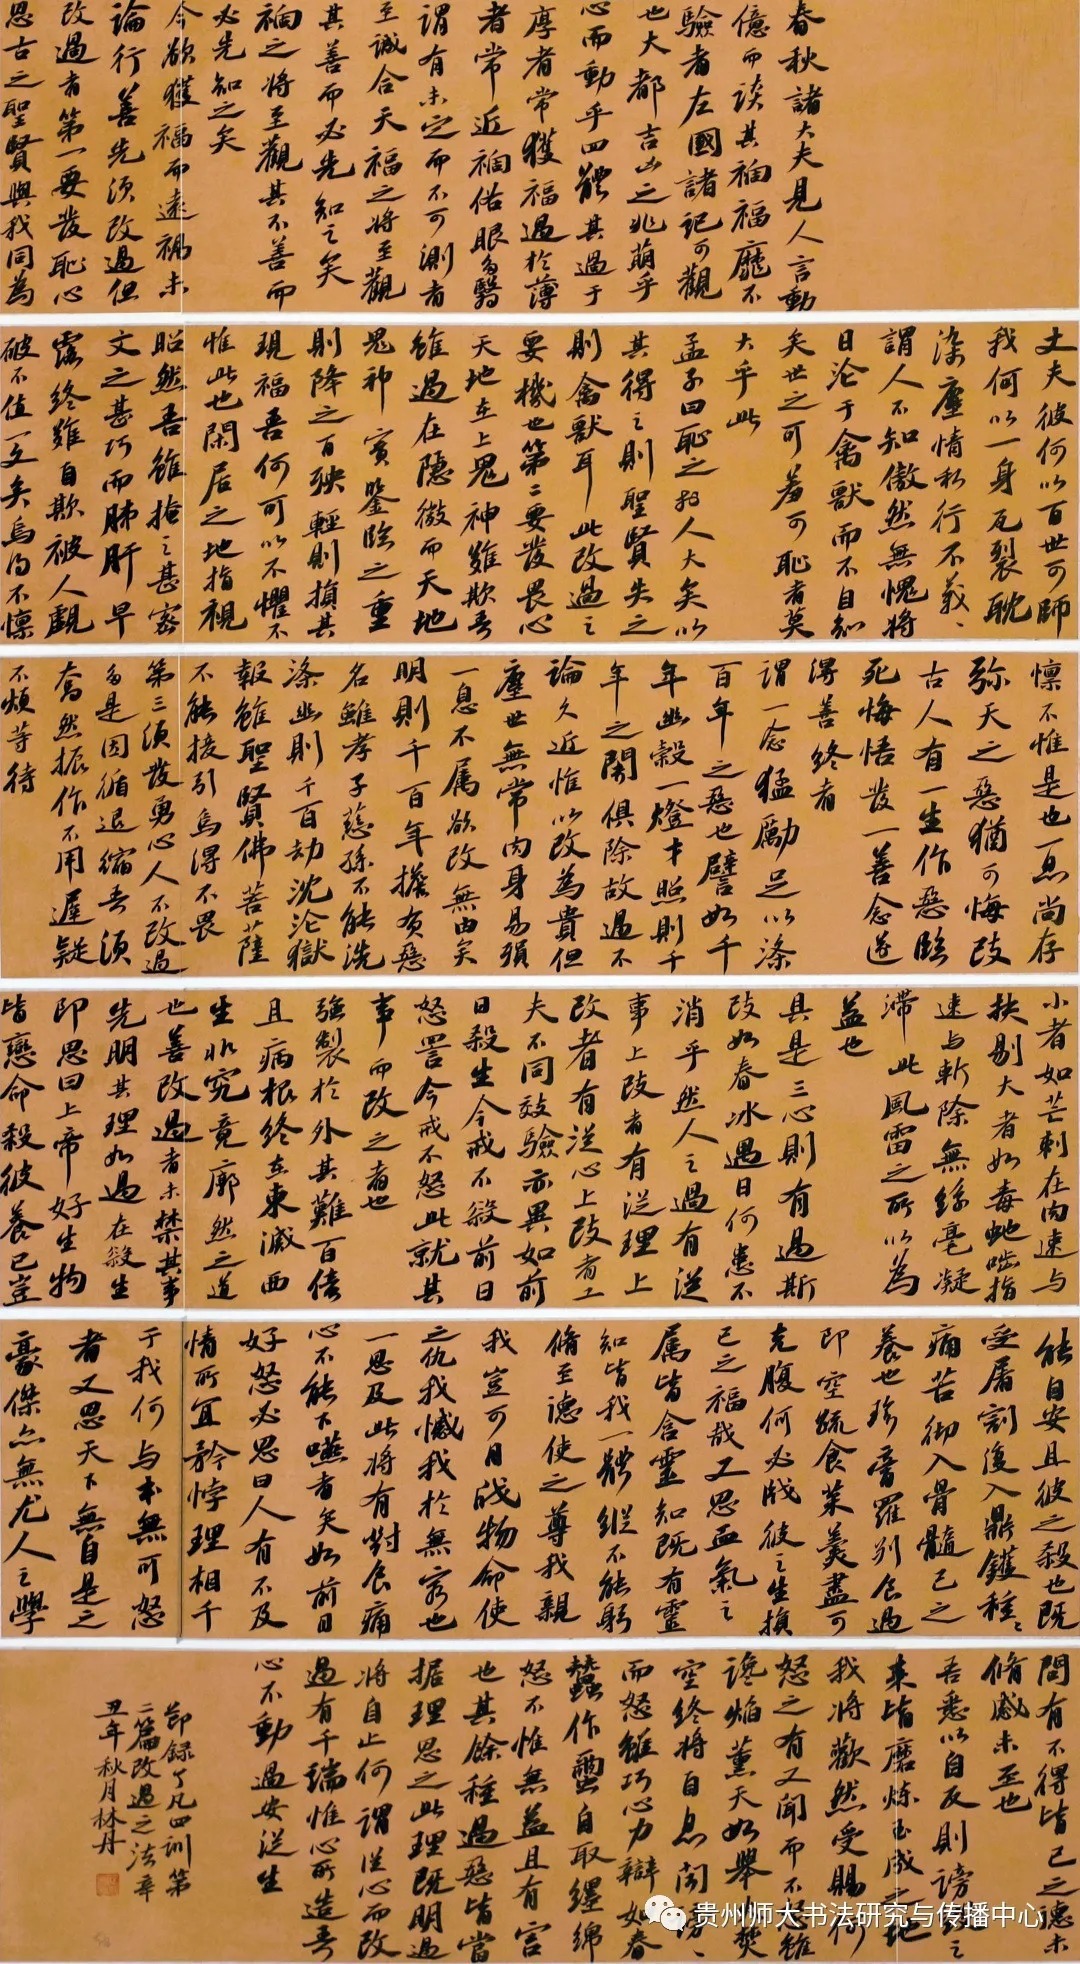 春秋諸大夫見人言動
億而談其禍福靡不
驗者左國諸記可觀
也大都吉凶之兆萌乎
心而動乎四體其過于
厚者常獲福過於薄
者常近禍俗眼多翳
謂有未定而不可測者
至誠合天福之將至觀
其善而必先知之矣
禍之將至觀其不善而
必先知之矣
今欲獲福而遠禍未
論行善先須改過但
改過者第一要發恥心
思古之聖賢與我同為
丈夫彼何以百世可師
我何以一身瓦裂耽
染塵情私行不義、
謂人不知傲然無愧將
日淪于禽獸而不自知
矣世之可羞可恥者莫
大乎此
孟子曰恥之於人大矣以
其得之則聖賢失之
則禽獸耳此改過之
要機也第二要發畏心
天地在上鬼神難欺吾
雖過在隱微而天地
鬼神實鑒臨之重
則降之百殃輕則損其
現福吾何可以不懼不
惟此也閑居之地指視
昭然吾雖掩之甚密
文之甚巧而肺肝早
露終難自欺被人覷
破不值一文矣烏得不懍
懍不惟是也一息尚存
彌天之惡猶可悔改
古人有一生作惡臨
死悔悟發一善念遂
得善終者
謂一念猛勵足以滌
百年之惡也譬如千
年幽谷一燈才照則千
年之闇俱除故過不
論久近惟以改為貴但
塵世無常肉身易殞
一息不屬欲改無由矣
明則千百年擔負惡
名雖孝子慈孫不能洗
滌幽則千百劫沈淪獄
報雖聖賢佛菩薩
不能接引烏得不畏
第三須發勇心人不改過
多是因循退縮吾須
奮然振作不用遲疑
不煩等待
小者如芒刺在肉速與
抉剔大者如毒蛇嚙指
速與斬除無絲毫凝
滯此風雷之所以為
益也
具是三心則有過斯
改如春冰遇日何患不
消乎然人之過有從
事上改者有從理上
改者有從心上改者工
夫不同效驗亦異如前
日殺生今戒不殺前日
怒詈今戒不怒此就其
事而改之者也
強製於外其難百倍
且病根終在東滅西
生非究竟廓然之道
也善改過者未禁其事
先明其理如過在殺生
即思曰上帝好生物
皆戀命殺彼養己豈
能自安且彼之殺也既
受屠割復入鼎鑊種、
痛苦徹入骨髓己之
養也珍膏羅列食過
即空蔬食菜羹盡可
充腹何必戕彼之生損
己之福哉又思血氣之
屬皆含靈知既有靈
知皆我一體縱不能躬
脩至德使之尊我親
我豈可日戕物命使
之仇我憾我於無窮也
一思及此將有對食痛
心不能下嚥者矣如前日
好怒必思曰人有不及
情所宜矜悖理相干
于我何與本無可怒
者又思天下無自是之
豪傑亦無尤人之學
問有不得皆己之德未
脩感未至也
吾悉以自反則謗毀之
來皆磨煉玉成之地
我將歡然受賜何
怒之有又聞而不怒雖
讒焰薰天如舉火焚
空終將自息聞謗
而怒雖巧心力辯如春
蠶作繭自取纏綿
怒不惟無益且有害
也其餘種過惡皆當
据理思之此理既明過
將自止何謂從心而改
過有千端惟心所造吾
心不動過安從生
節錄了凡四訓第
二篇改過之法辛
丑年秋月林丹
贵州师大书法研究与传播中心